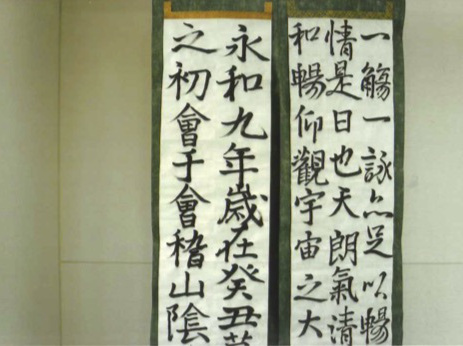 一觴一詠亦足以暢
情是日也天朗氣清
和暢仰觀宇宙之大
永和九年歲在癸丑
之初會于會稽山陰